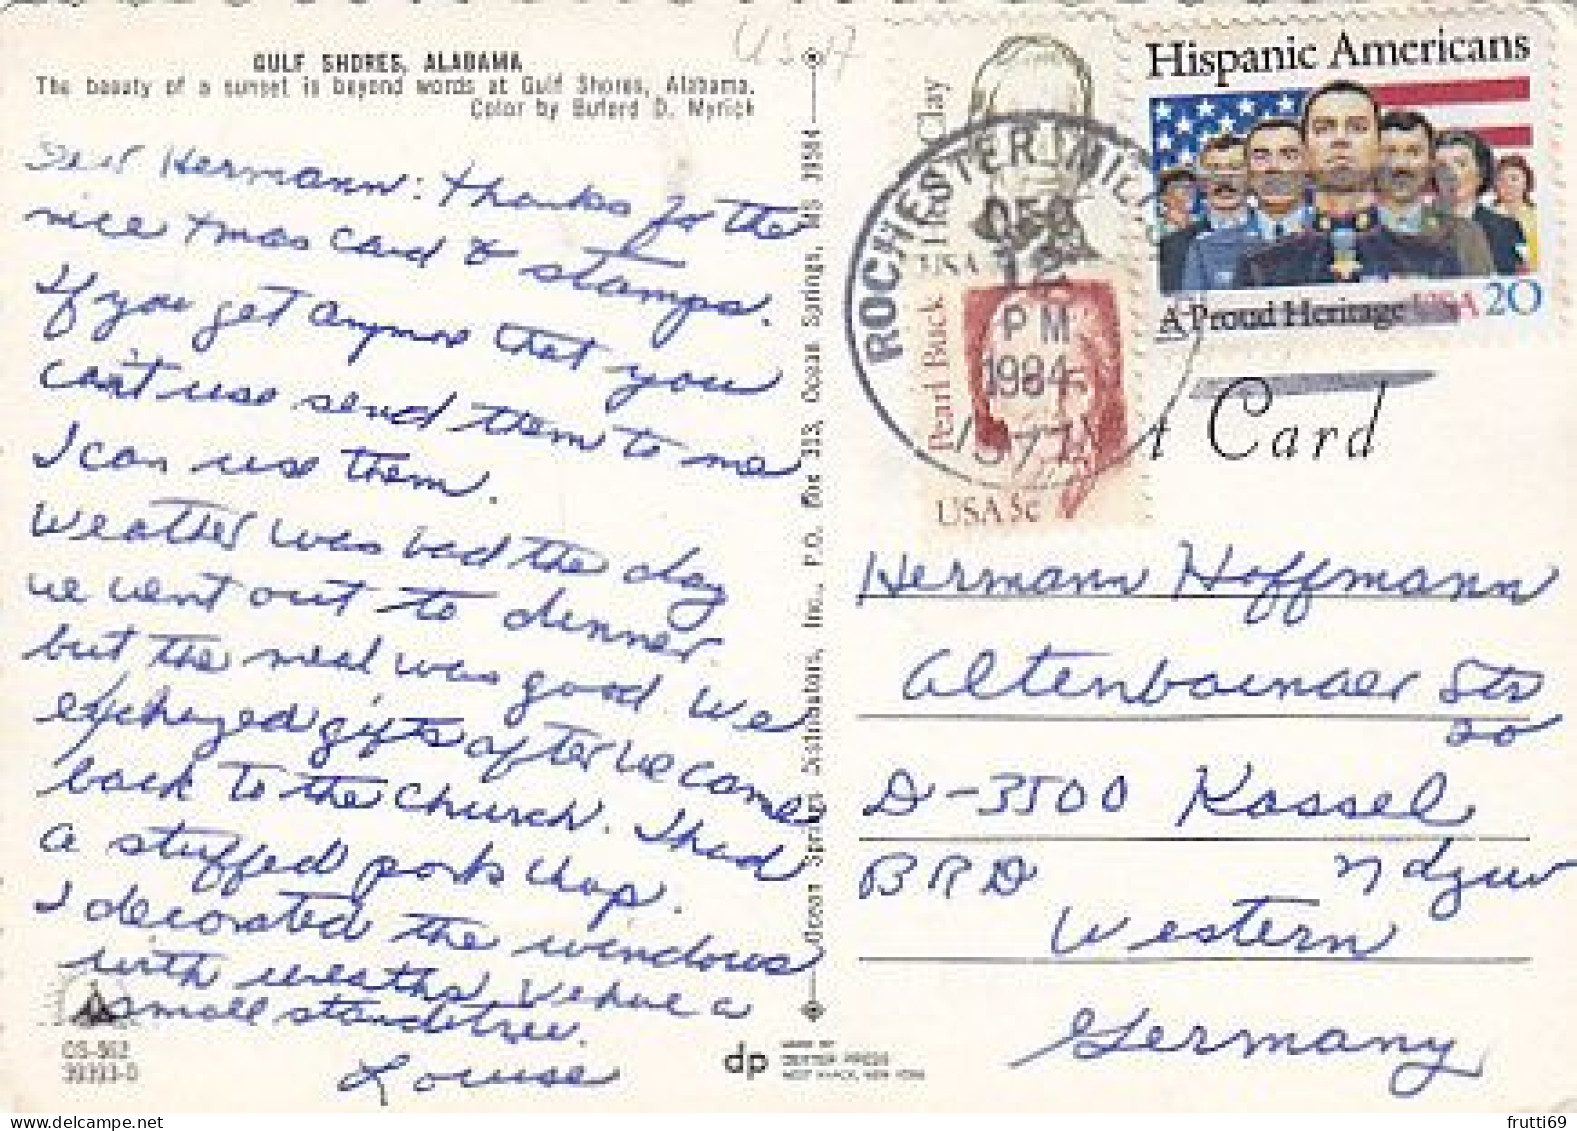 GULF SHORES, ALABAMA
The beauty of a sunset is beyond words at Gulf Shores, Alabama.
Color by Buford D. Myrick
Dear Hermann: thanks for the
nice xmas card & stamps.
If you get anymore that you
can't use send them to me
I can use them.
Weather was bad the day
we went out to dinner.
but the meal was good. We
exchanged gifts after we came
back to the church. I had
a stuffed pork chop.
I decorated the windows
with wreaths. We have a
small standtree.
Louise
OS-962
39393-D
Ocean Springs Distributors, Inc., P.O. Box 313, Ocean Springs, MS 39564
dp
MADE BY
DEXTER PRESS
WEST NYACK, NEW YORK
USA
Clay
USA
Pearl Buck
USA 5c
Hispanic Americans
A Proud Heritage USA 20
ROCHESTER, MI
DEC
12
PM
1984
Card
Hermann Hoffmann
Altenbaunaer Str
20
D-3500 Kassel
BRD
Western
Germany
frutti69